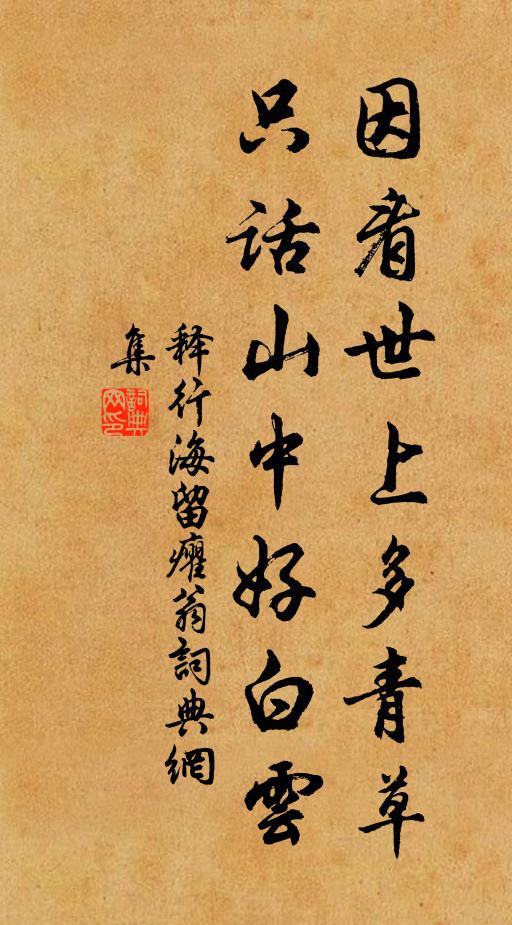 因看世上多青草
只话山中好白雲
释行海留癯翁詞典網
集
詞典
网印